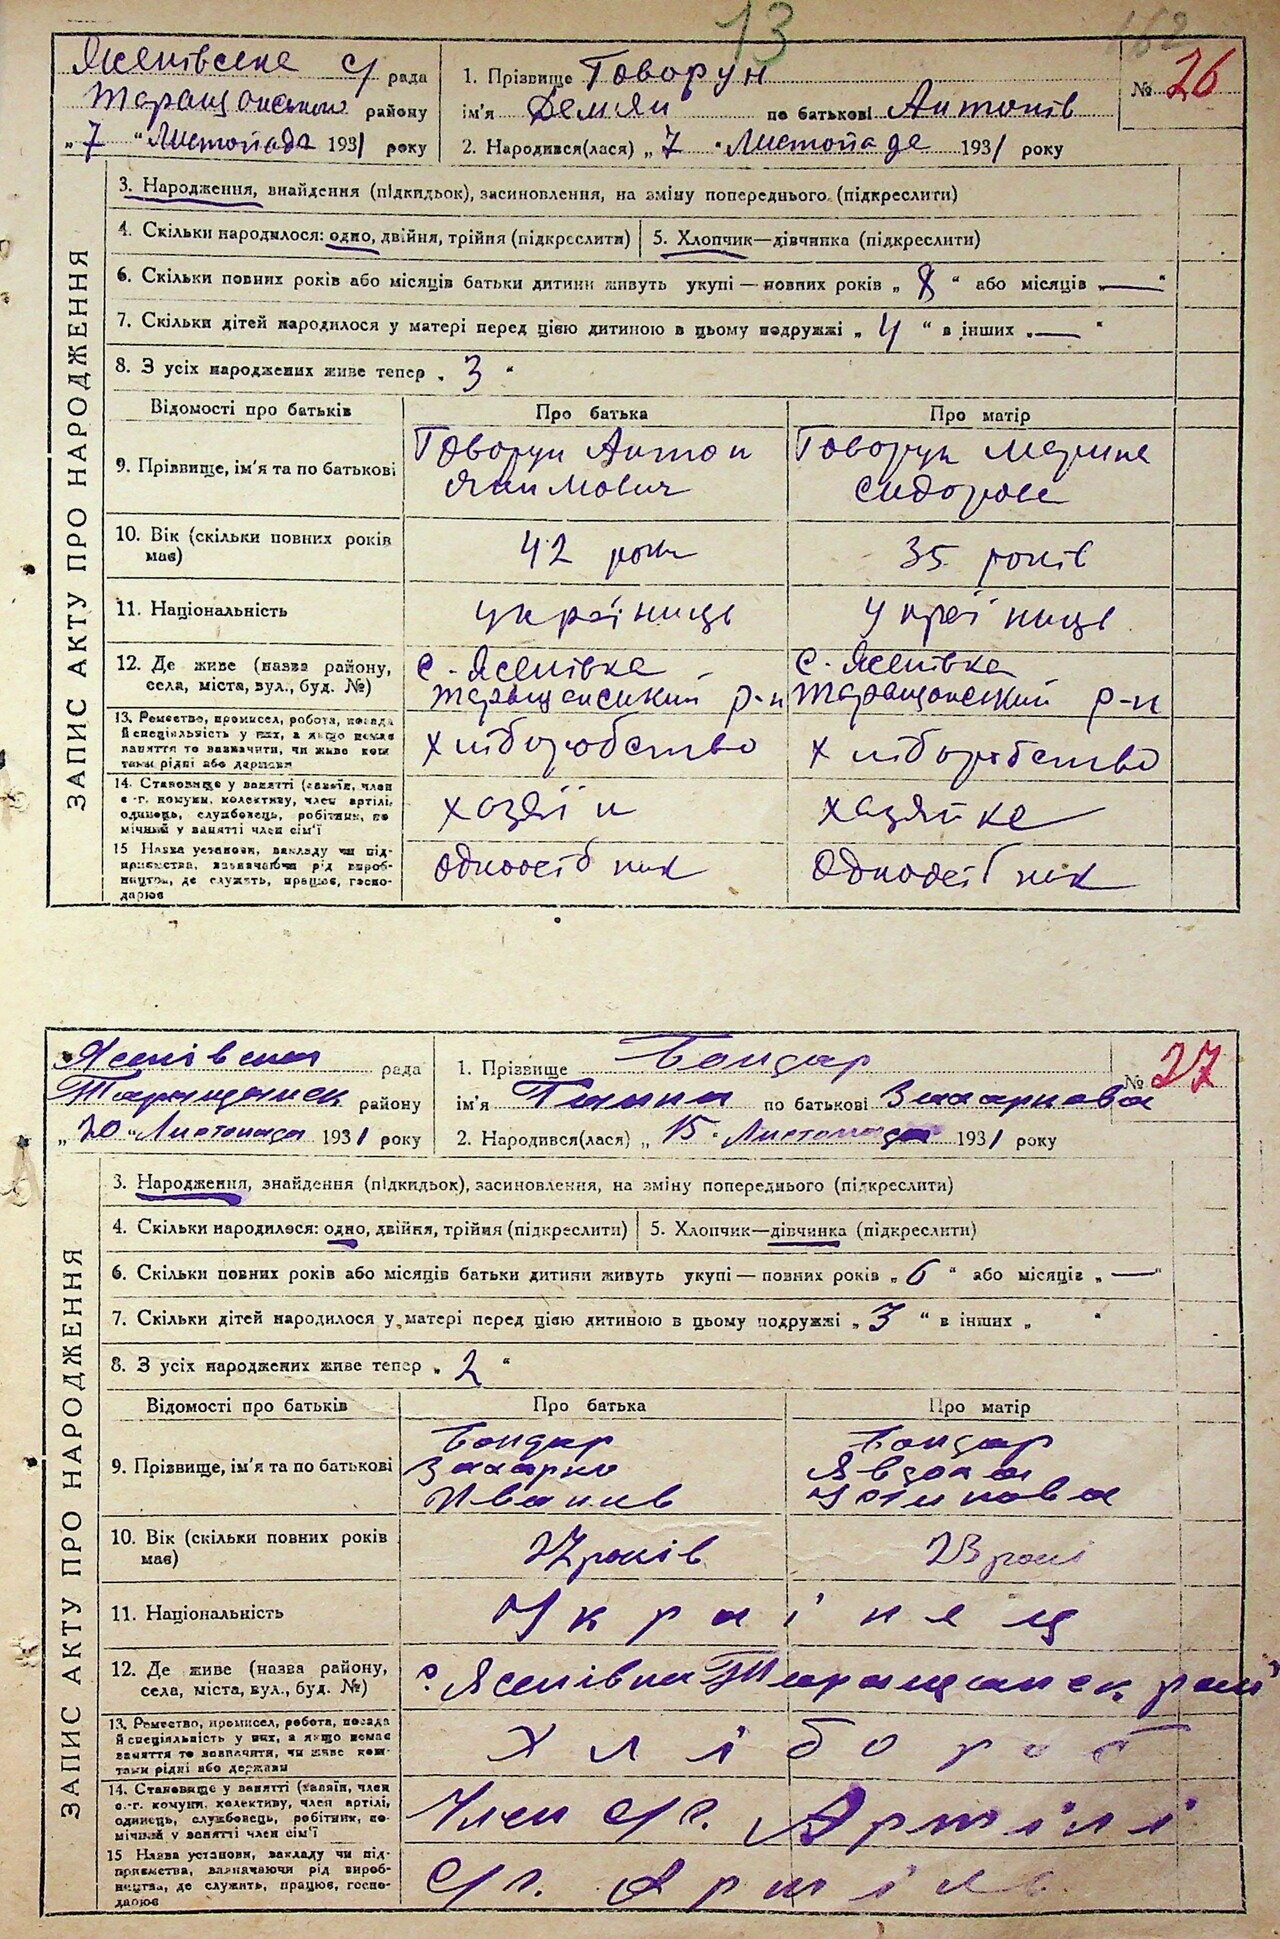 13
162
Ясенівська с/ рада
Таращанського району
„ 7 " Листопада 1931 року
1. Прізвище Говорун
ім'я Демян по батькові Антонів
2. Народився(лася) „ 7 " Листопада 1931 року
№ 26
ЗАПИС АКТУ ПРО НАРОДЖЕННЯ
3. Народження, знайдення (підкидьок), засиновлення, на зміну попереднього (підкреслити)
4. Скільки народилося: одно, двійня, трійня (підкреслити) 5. Хлопчик—дівчинка (підкреслити)
6. Скільки повних років або місяців батьки дитини живуть укупі — повних років „ 8 " або місяців „ — "
7. Скільки дітей народилося у матері перед цією дитиною в цьому подружжі „ 4 " в інших „ — "
8. З усіх народжених живе тепер „ 3 "
Відомості про батьків Про батька Про матір
9. Прізвище, ім'я та по батькові
Говорун Антон
Якимович
Говорун Марина
Сидорова
10. Вік (скільки повних років має)
42 роки
35 років
11. Національність
українець
українець
12. Де живе (назва району, села, міста, вул., буд. №)
с. Ясенівка
Таращанський р-н
с. Ясенівка
Таращанський р-н
13. Ремество, промисел, робота, посада
й спеціяльність у них, а якщо немає
заняття то зазначити, чи живе кош-
тами рідні або держави
хліборобство
хліборобство
14. Становище у занятті (хазяїн, член
с.-г. комуни, колективу, член артілі,
одинець, службовець, робітник, по-
мічний у занятті член сім'ї
хазяїн
хазяйка
15 Назва установи, закладу чи під-
приємства, зазначаючи рід вироб-
ництва, де служить, працює, госпо-
дарює
одноосібник
одноосібник
Ясенівська рада
Таращанськ району
„ 20 " Листопада 1931 року
1. Прізвище Бондар
ім'я Ганна по батькові Захаркова
2. Народився(лася) „ 15 " Листопада 1931 року
№ 27
ЗАПИС АКТУ ПРО НАРОДЖЕННЯ
3. Народження, знайдення (підкидьок), засиновлення, на зміну попереднього (підкреслити)
4. Скільки народилося: одно, двійня, трійня (підкреслити) 5. Хлопчик—дівчинка (підкреслити)
6. Скільки повних років або місяців батьки дитини живуть укупі — повних років „ 6 " або місяців „ — "
7. Скільки дітей народилося у матері перед цією дитиною в цьому подружжі „ 3 " в інших „ "
8. З усіх народжених живе тепер „ 2 "
Відомості про батьків Про батька Про матір
9. Прізвище, ім'я та по батькові
Бондар
Захарко
Иванів
Бондар
Явдоха
10. Вік (скільки повних років має)
27 років
23 рокі
11. Національність
Українец
12. Де живе (назва району, села, міста, вул., буд. №)
с. Ясенівка Таращанск рай
13. Ремество, промисел, робота, посада
й спеціяльність у них, а якщо немає
заняття то зазначити, чи живе кош-
тами рідні або держави
Хлібороб
14. Становище у занятті (хазяїн, член
с.-г. комуни, колективу, член артілі,
одинець, службовець, робітник, по-
мічний у занятті член сім'ї
Член С/г. Артілі
15 Назва установи, закладу чи під-
приємства, зазначаючи рід вироб-
ництва, де служить, працює, госпо-
дарює
С/г. Артіль